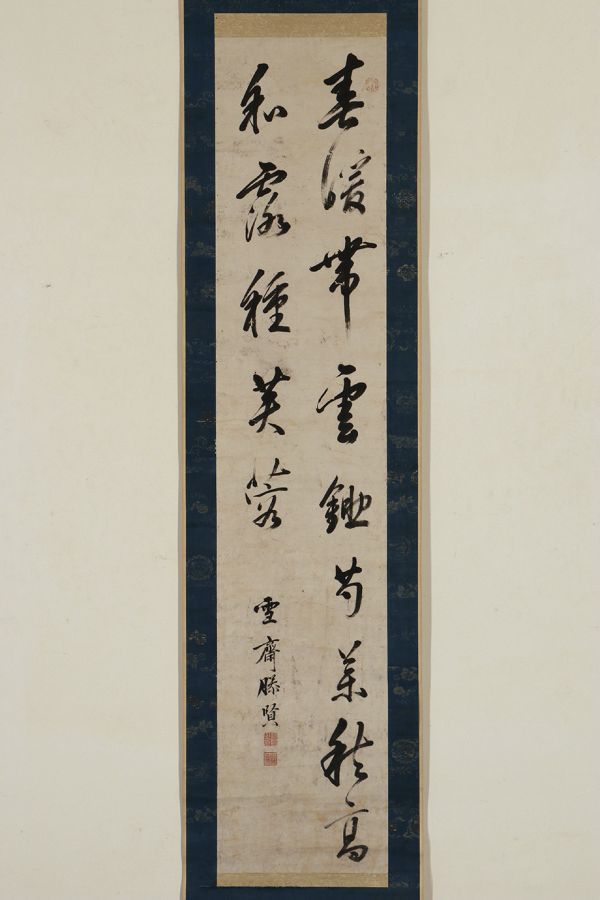 春暖帶雲鋤芍藥秋高
和露種芙蓉
雪齋滕賢